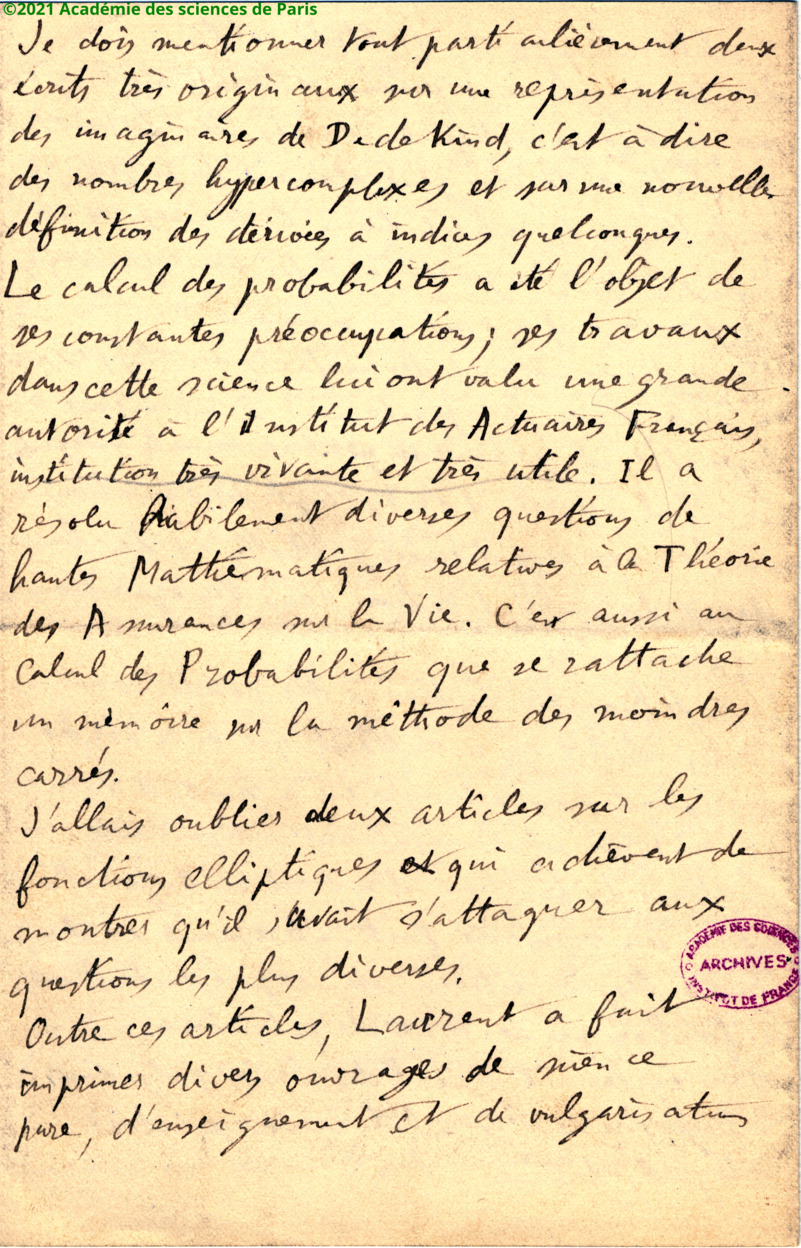 ©2021 Académie des sciences de Paris
Je dois mentionner tout particulièrement deux
écrits très originaux sur une représentation
des imaginaires de Dedekind, c'est à dire
des nombres hypercomplexes et sur une nouvelle
définition des dérivées à indices quelconques.
Le calcul des probabilités a été l'objet de
ses constantes préoccupations; ses travaux
dans cette science lui ont valu une grande
autorité à l'Institut des Actuaires Français,
institution très vivante et très utile. Il a
résolu habilement diverses questions de
hautes Mathématiques relatives à la Théorie
des Assurances sur la Vie. C'est aussi au
Calcul des Probabilités que se rattache
un mémoire sur la méthode des moindres
carrés.
J'allais oublier deux articles sur les
fonctions elliptiques et qui achèvent de
montrer qu'il savait s'attaquer aux
questions les plus diverses.
ACADÉMIE DES SCIENCES
ARCHIVES
INSTITUT DE FRANCE
Outre ces articles, Laurent a fait
imprimer divers ouvrages de science
pure, d'enseignement et de vulgarisation